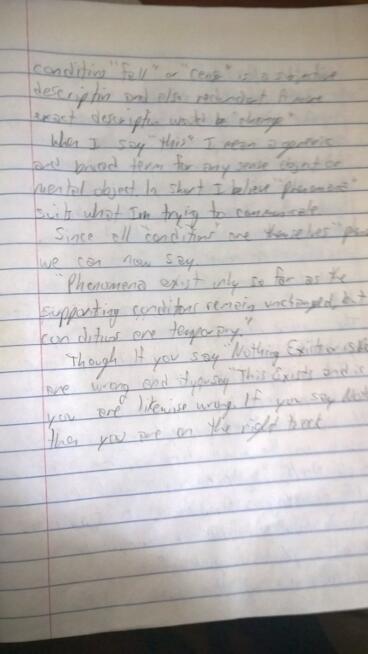 conditions "fall" or "cease" is a subjective
description and also redundant A more
exact description would be "change"
When I say "this" I mean a generic
and broad term for any sense object or
mental object In short I believe "phenomena"
suits what Im trying to communicate
Since all "conditions" are themselves
we can now say
"Phenomena exist only so far as the
supporting conditions remain unchanged, but
conditions are temporary"
Though If you say "Nothing Exists
are wrong and if you say "This Exists and is
you are likewise wrong. If you say
then you are on the right track